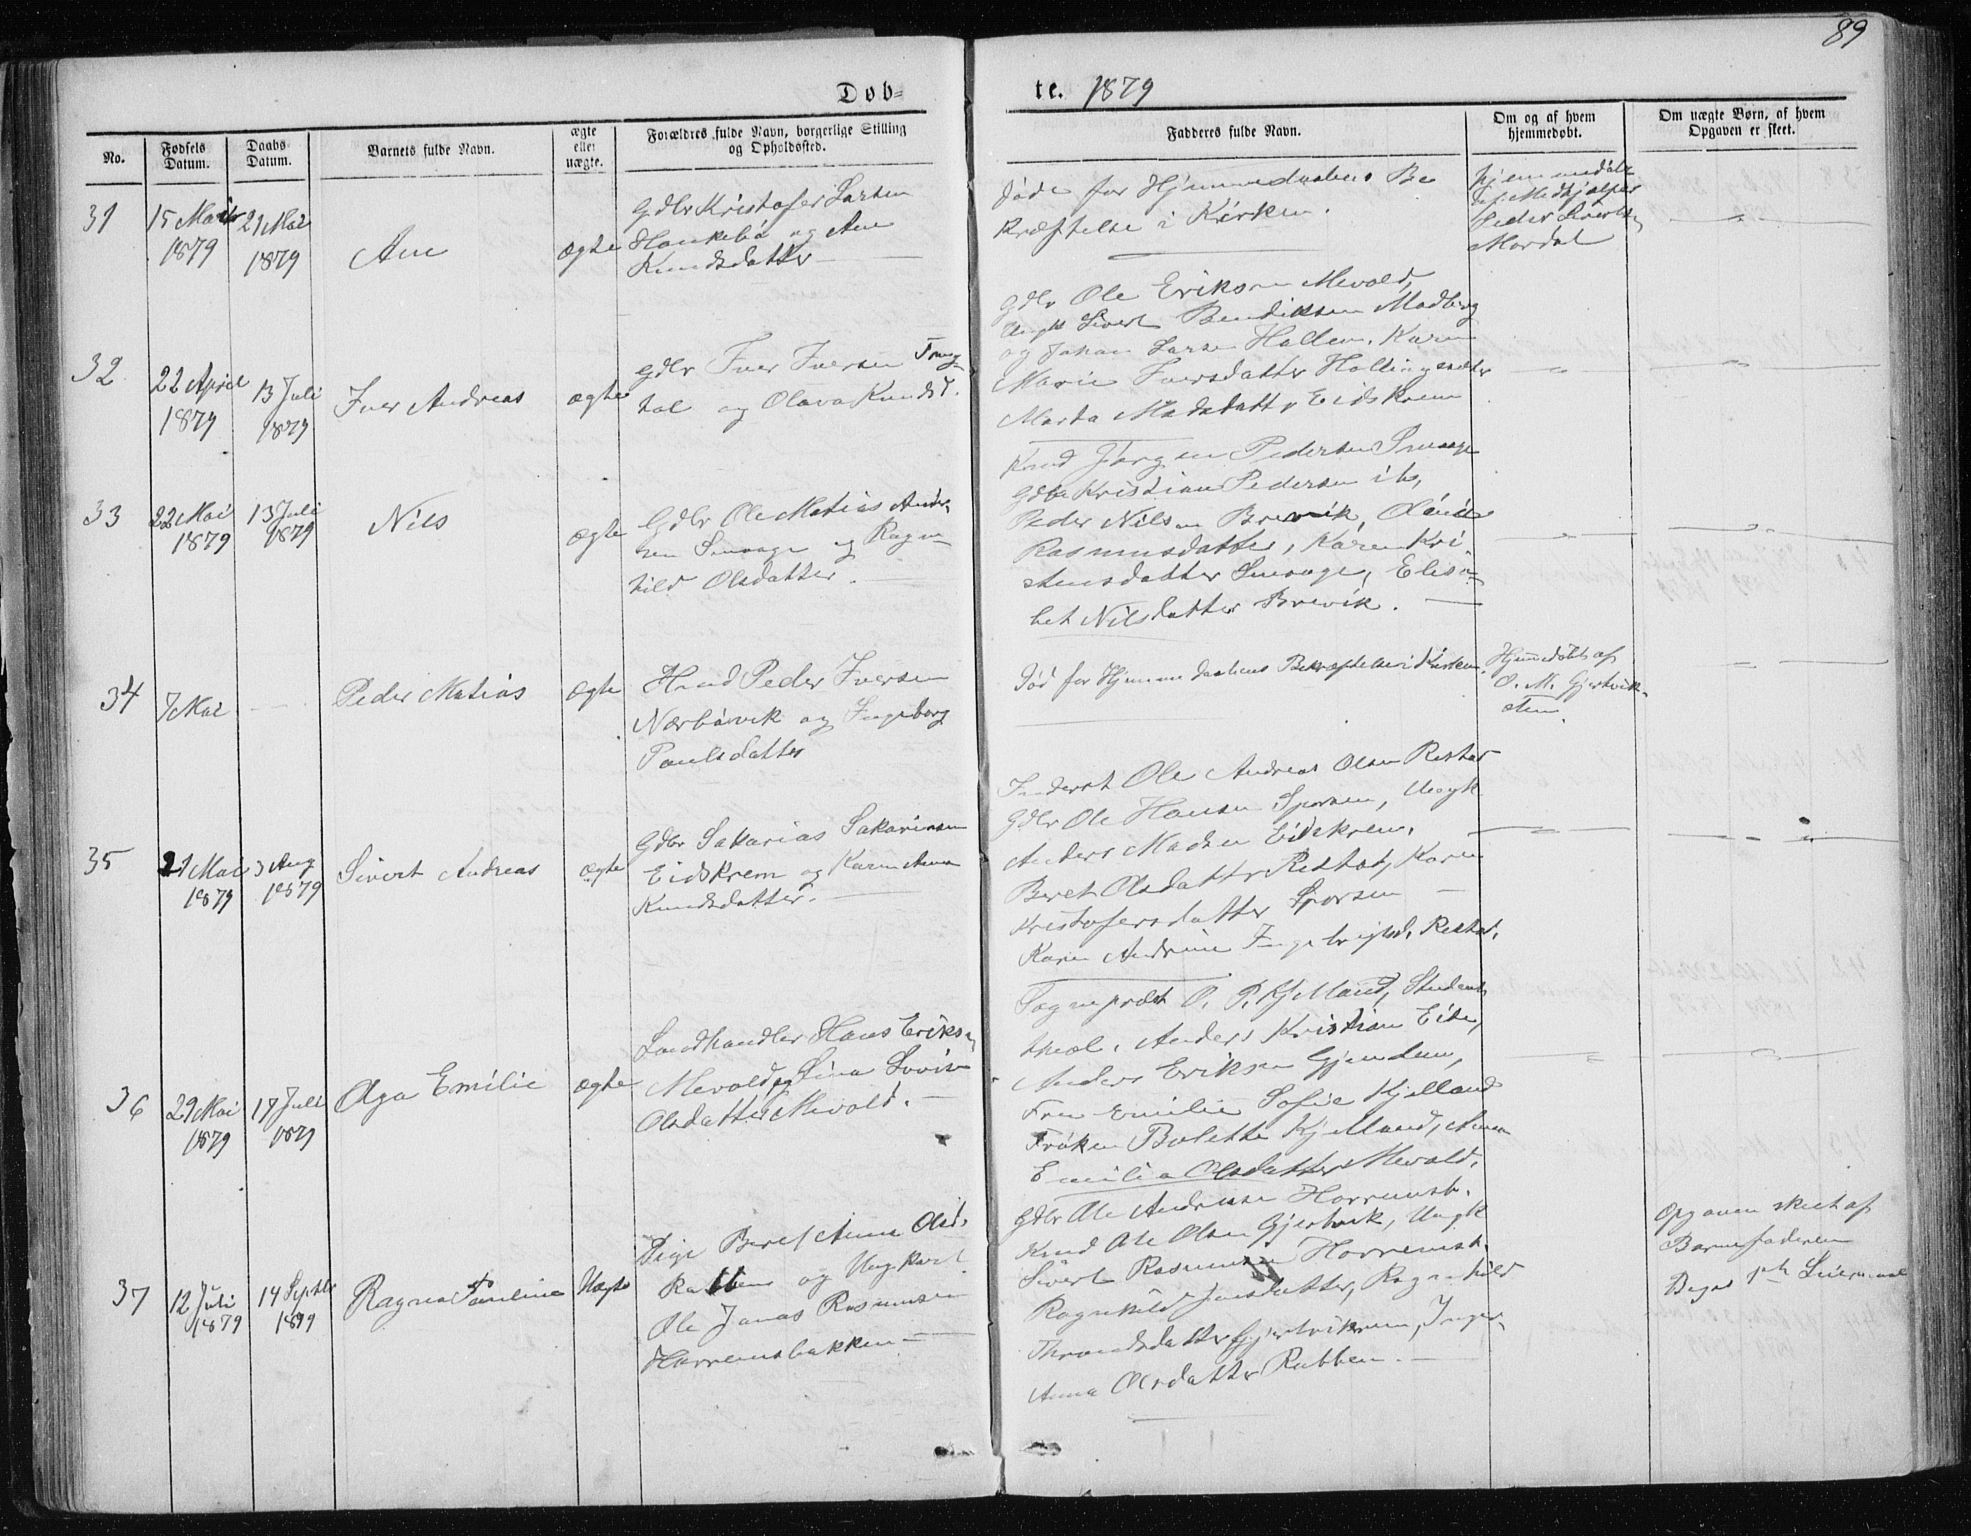 89
Døb-
te. 1879
No.
Fødsels Datum.
Daabs Datum.
Barnets fulde Navn.
ægte eller uægte.
Forældres fulde Navn, borgerlige Stilling og Opholdsted.
Fadderes fulde Navn.
Om og af hvem hjemmedøbt.
Om uægte Børn, af hvem Opgaven er skeet.
31
15 Mai
1879
21 Mai
1879
Ane
ægte
Gdbr Kristofer Larsen
og Ane
Knudsdatter
Døde før Hjemmedaabens Be
kræftelse i Kirken.
Hjemmedøbt
af Medhjælper
Peder
Mordal
32
22 April
1879
13 Juli
1879
Iver Andreas
ægte
Gdbr Iver Iversen
og Olava Knudsd.
Gdbr Ole Eriksen Mevold,
Ungk Sivert Bendiksen
og Johan Larsen Hollen, Karen
Marie Iversdatter Hollingsæter
Marta Madsdatter Eidskrem
33
22 Mai
1879
13 Juli
1879
Nils
ægte
Gdbr Ole Matias Ander-
sen Smaage og Ragn-
hild Olsdatter.
Knud Jørgen Pedersen Smaage
Gdbr Kristian Pedersen ibs,
Peder Nilsen Brevik,
Rasmusdatter, Karen Kri-
stensdatter Smaage, Elisa-
bet Nilsdatter Brevik.
34
7 Mai
Peder Matias
ægte
Hmd Peder Iversen
Nærbøvik og Ingeborg
Paulsdatter
Død før Hjemmedaabens Bekræftelse i Kirken
Hjemmedøbt af
O. M. Gjertvik-
35
21 Mai
1879
3 Aug
1879
Sivert Andreas
ægte
Gdbr Sakarias Sakariasen
Eidskrem og Karen Anna
Knudsdatter.
Inderst Ole Andreas Olsen Restad
Gdbr Ole Hansen Sporsem, Ungk
Anders Madsen Eidskrem,
Beret Olsdatter Restad, Karen
Kristofersdatter Sporsem
Karen Andrine Ingebrigtsd. Restad,
36
29 Mai
1879
17 Juli
1879
Aga Emilie
ægte
Landhandler Hans Eriksen
Mevold og Sina Lovise
Olsdatter Mevold.
Sogneprest O. P. Kjelland, Student
theol. Anders Kristian Eide,
Anders Eriksen Gjendem,
Fru Emilie Sofie Kjelland
Frøken Bolette Kjelland, Anna
Emilia Olsdatter Mevold.
37
12 Juli
1879
14 Septbr
1879
Ragna Pauline
Uægte
Pige Beret Anna Olsd.
Rabben og Ungkarl
Ole Jonas Rasmusen
Harremsbakken
Gdbr Ole Andersen Harremsb.
Knud Ole Olsen Gjertvik, Ungk
Sivert Rasmusen Harremsb.
Ragnhild Jonsdatter, Ragnhild
Throndsdatter Gjertvikrem, Inger
Anna Olsdatter Rabben.
Opgaven skeet af
Barnefaderen
Begges 1ste Leiermaal